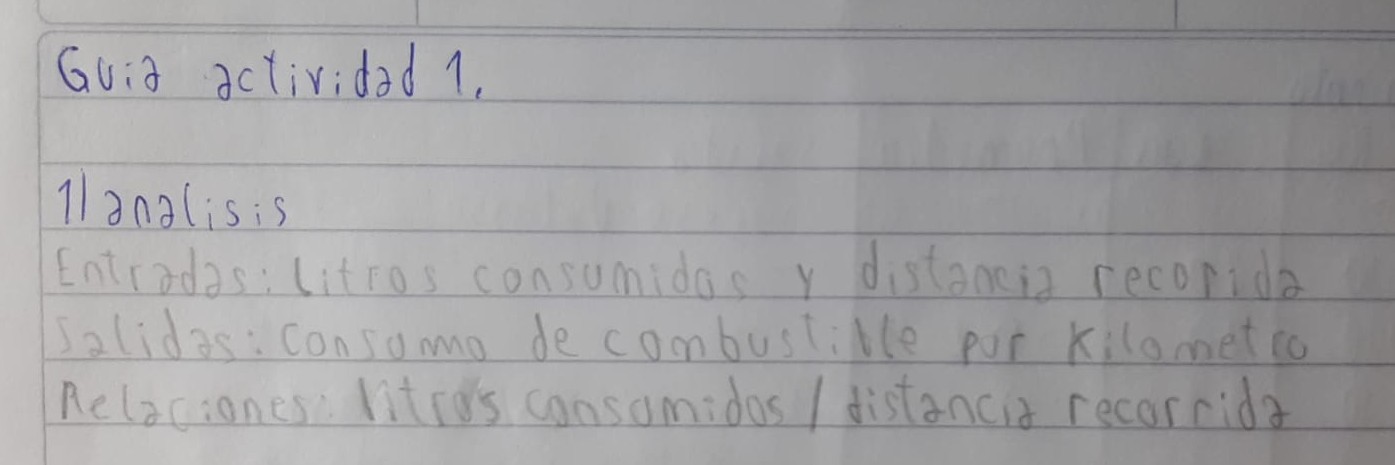 Guia actividad 1.
1) analisis
Entradas: litros consumidos y distancia recorida
Salidas: Consumo de combustible por Kilometro
Relaciones: litros consumidos / distancia recorrida